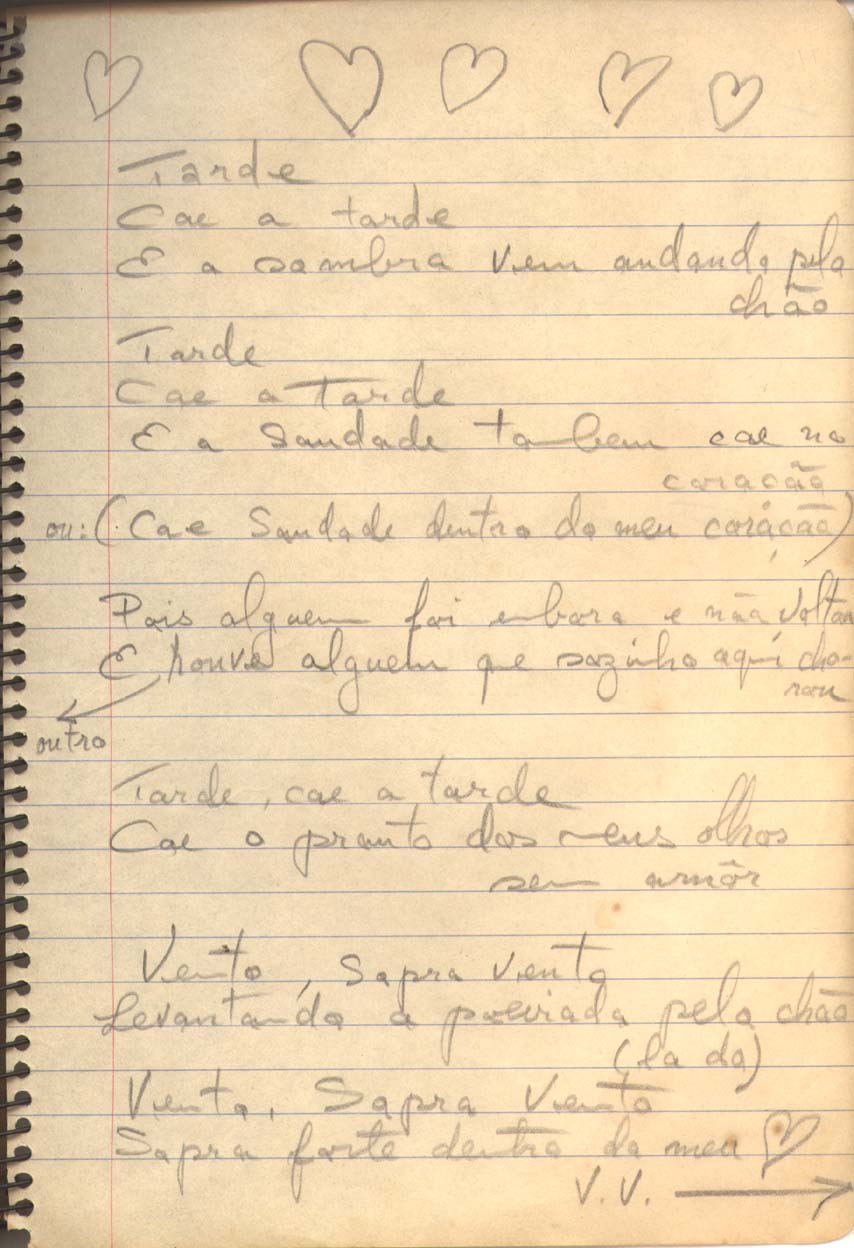 Tarde
Cae a tarde
E a sombra vem andando pelo
chão
Tarde
Cae a Tarde
E a Saudade tambem cae no
coração
ou: (Cae Saudade dentro do meu coração)
Pois alguem foi embora e não voltou
E houve alguem que sozinho aqui cho-
rou
outro
Tarde, cae a tarde
Cae o pranto dos meus olhos
sem amôr
Vento, Sopra vento
Levantando a poeirada pelo chão
(la do)
Vento, Sopra Vento
Sopra forte dentro do meu
V.V.